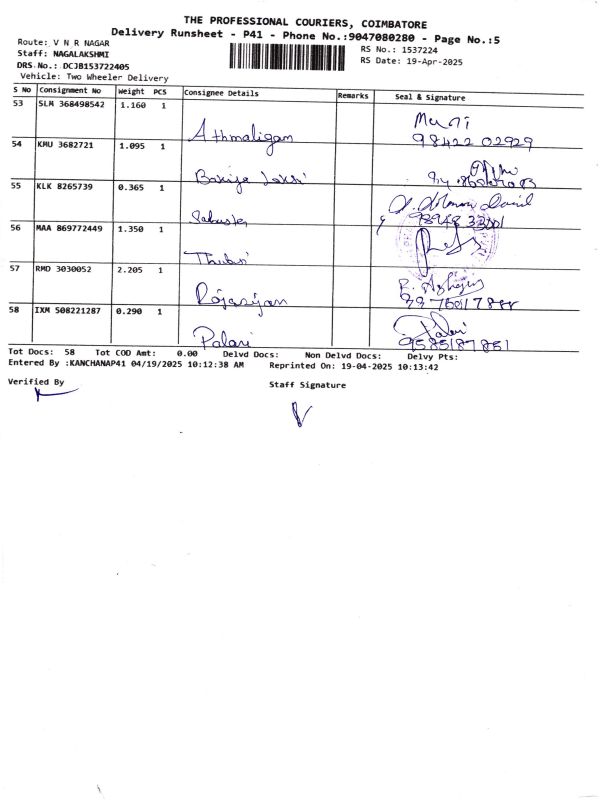 THE PROFESSIONAL COURIERS, COIMBATORE
Delivery Runsheet - P41 - Phone No.:9047080280 - Page No.:5
Route: V N R NAGAR
RS No.: 1537224
Staff: NAGALAKSHMI
RS Date: 19-Apr-2025
DRS No.: DCJB153722405
Vehicle: Two Wheeler Delivery
S No Consignment No Weight PCS Consignee Details Remarks Seal & Signature
53 SLM 368498542 1.160 1
Athmaligam 98422 02929
54 KMU 3682721 1.095 1
55 KLK 8265739 0.365 1
56 MAA 869772449 1.350 1
57 RMD 3030052 2.205 1
58 IXM 508221287 0.290 1
Palani 9585187851
Tot Docs: 58 Tot COD Amt: 0.00 Delvd Docs: Non Delvd Docs: Delvy Pts:
Entered By :KANCHANAP41 04/19/2025 10:12:38 AM Reprinted On: 19-04-2025 10:13:42
Verified By
Staff Signature